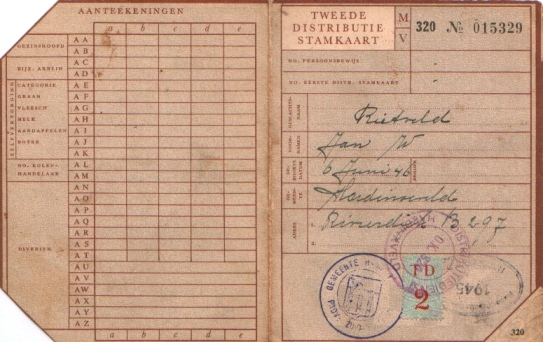 AANTEEKENINGEN
a b c d e
GEZINSHOOFD
AA
AB
BIJZ. ARBEID
AC
AD
ZELFVERZORGING
CATEGORIE
AE
GRAAN
AF
VLEESCH
AG
MELK
AH
AARDAPPELEN
AI
BOTER
AJ
AK
NO. KOLEN-
AL
HANDELAAR
AM
AN
AO
AP
AQ
AR
DIVERSEN
AS
AT
AU
AV
AW
AX
AY
AZ
a b c d e
TWEEDE
DISTRIBUTIE
STAMKAART
M
V
320 No 015329
NO. PERSOONSBEWIJS
NO. EERSTE DISTR. STAMKAART
GESLACHTS-
NAAM
Rietveld
VOOR-
NAMEN
Jan W
GE-
BOORTE
DATUM
6 Juni 46
Hardinxveld
ADRES
Rivierdijk B 297
GEMEENTE
FD
2
1945
320